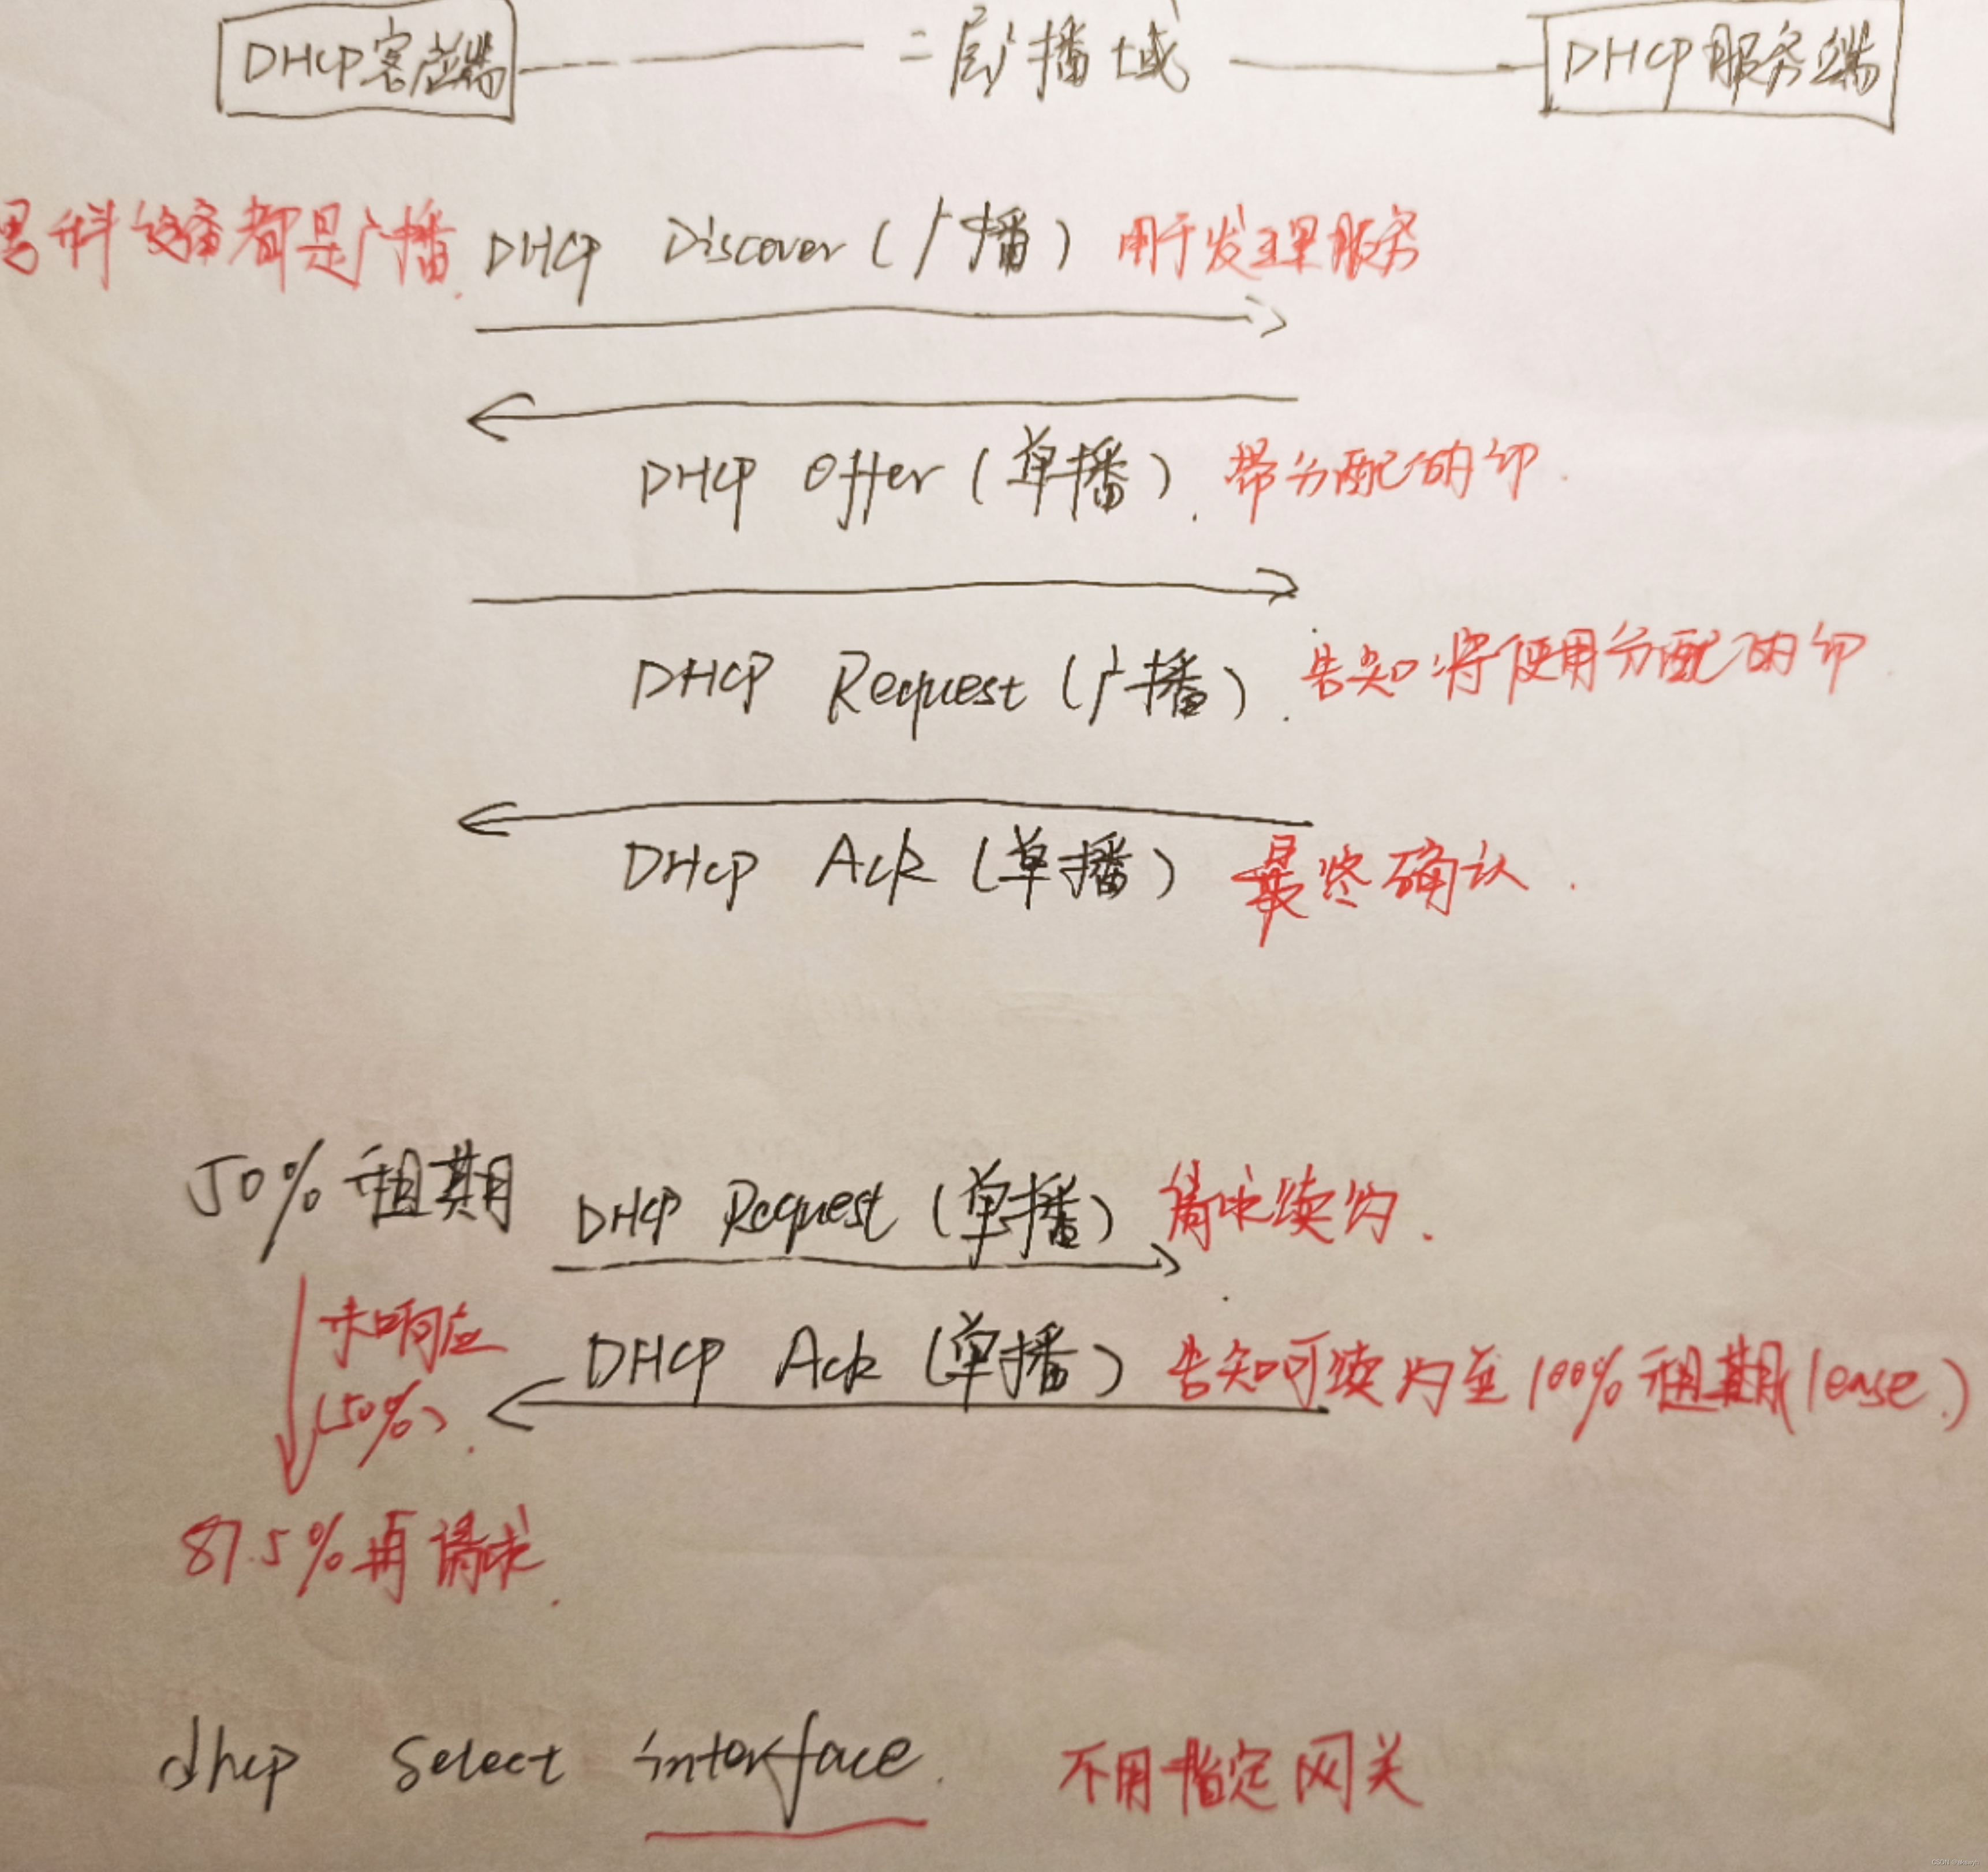 DHCP客户端 二层广播域 DHCP服务端
科设备都是广播. DHCP Discover(广播) 用于发现服务
DHCP Offer(单播). 带分配的IP.
DHCP Request(广播). 告知将使用分配的IP
DHCP Ack(单播) 最终确认.
50%租期 DHCP Request(单播) 请求续约.
未响应 DHCP Ack(单播) 告知可续约至100%租期(lease.)
(50%).
87.5%再请求.
dhcp select interface. 不用指定网关